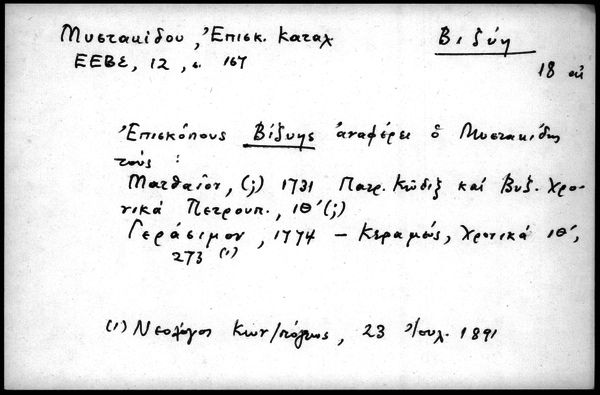 Μυστακίδου, Ἐπισκ. Καταλ
Βιζύη
ΕΕΒΣ, 12, σ. 167
18 αι
Ἐπισκόπους Βιζύης ἀναφέρει ὁ Μυστακίδης
τούς :
Ματθαῖον, (;) 1731 Πατρ. Κῶδιξ καί Βυζ. Χρο-
νικά Πετρουπ., ΙΘ΄(;)
Γεράσιμον, 1774 — Κεραμεύς, Χρονικά ΙΘ΄,
273 (1)
(1) Νεολόγος Κων/πόλεως, 23 Ἰουλ. 1891